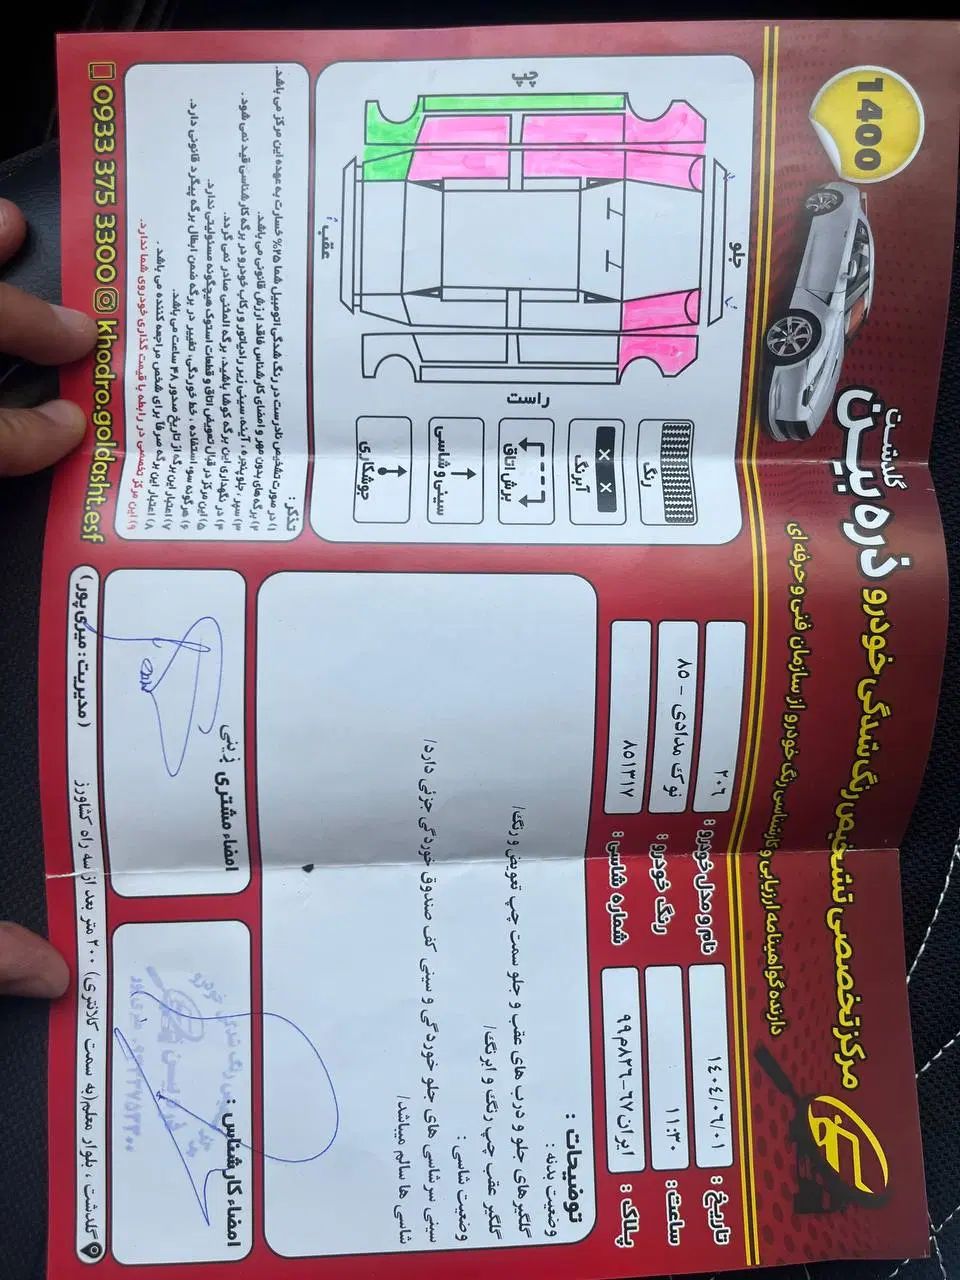 1400
گلدشت
ذره بین
مرکز تخصصی تشخیص رنگ شدگی خودرو
دارنده گواهینامه ارزیابی و کارشناسی رنگ خودرو از سازمان فنی و حرفه ای
تاریخ : ۱۴۰۴/۰۶/۰۱
ساعت : ۱۱:۳۰
پلاک : ایران ۶۷-۸۲۶م۹۹
نام و مدل خودرو : ۲۰۶
رنگ خودرو : نوک مدادی - ۸۵
شماره شاسی : ۸۵۱۳۱۷
جلو
عقب
چپ
راست
رنگ
آبرنگ
برش اتاق
سینی و شاسی
جوشکاری
توضیحات :
وضعیت بدنه :
گلگیر های جلو و درب های عقب و جلو سمت چپ تعویض و رنگ/
گلگیر عقب چپ رنگ و ابرنگ/
وضعیت شاسی :
سینی سر شاسی های جلو خوردگی و سینی کف صندوق خوردگی جزئی دارد/
شاسی ها سالم میباشد/
تذکر :
۱) در صورت تشخیص نادرست در رنگ شدگی اتومبیل شما ۲۵% خسارت به عهده این مرکز می باشد.
۲) برگه های بدون مهر و امضای کارشناس فاقد ارزش قانونی می باشد.
۳) سپر ، جلو پنجره ، آینه، سینی زیر رادیاتور و رکاب خودرو در برگه کارشناسی قید نمی شود.
۴) در نگهداری این برگه کوشا باشید. برگه المثنی صادر نمی گردد.
۵) این مرکز قبال تعویض اتاق و قطعات استوک هیچگونه مسئولیتی ندارد.
۶) هرگونه سو استفاده ، خط خوردگی، تغییر در برگه ضمن ابطال برگه پیگرد قانونی دارد.
۷) اعتبار این برگه از تاریخ صدور ۴۸ ساعت می باشد.
۸) اعتبار این برگه صرفا برای شخص مراجعه کننده می باشد .
۹) این مرکز تخصصی در رابطه با قیمت گذاری خودروی شما ندارد.
امضاء مشتری
امضاء کارشناس :
گلدشت ، بلوار معلم(به سمت کلانتری) ۲۰۰ متر بعد از سه راه کشاورز
(مدیریت : میری پور)
0933 375 3300
khodro.goldasht.esf